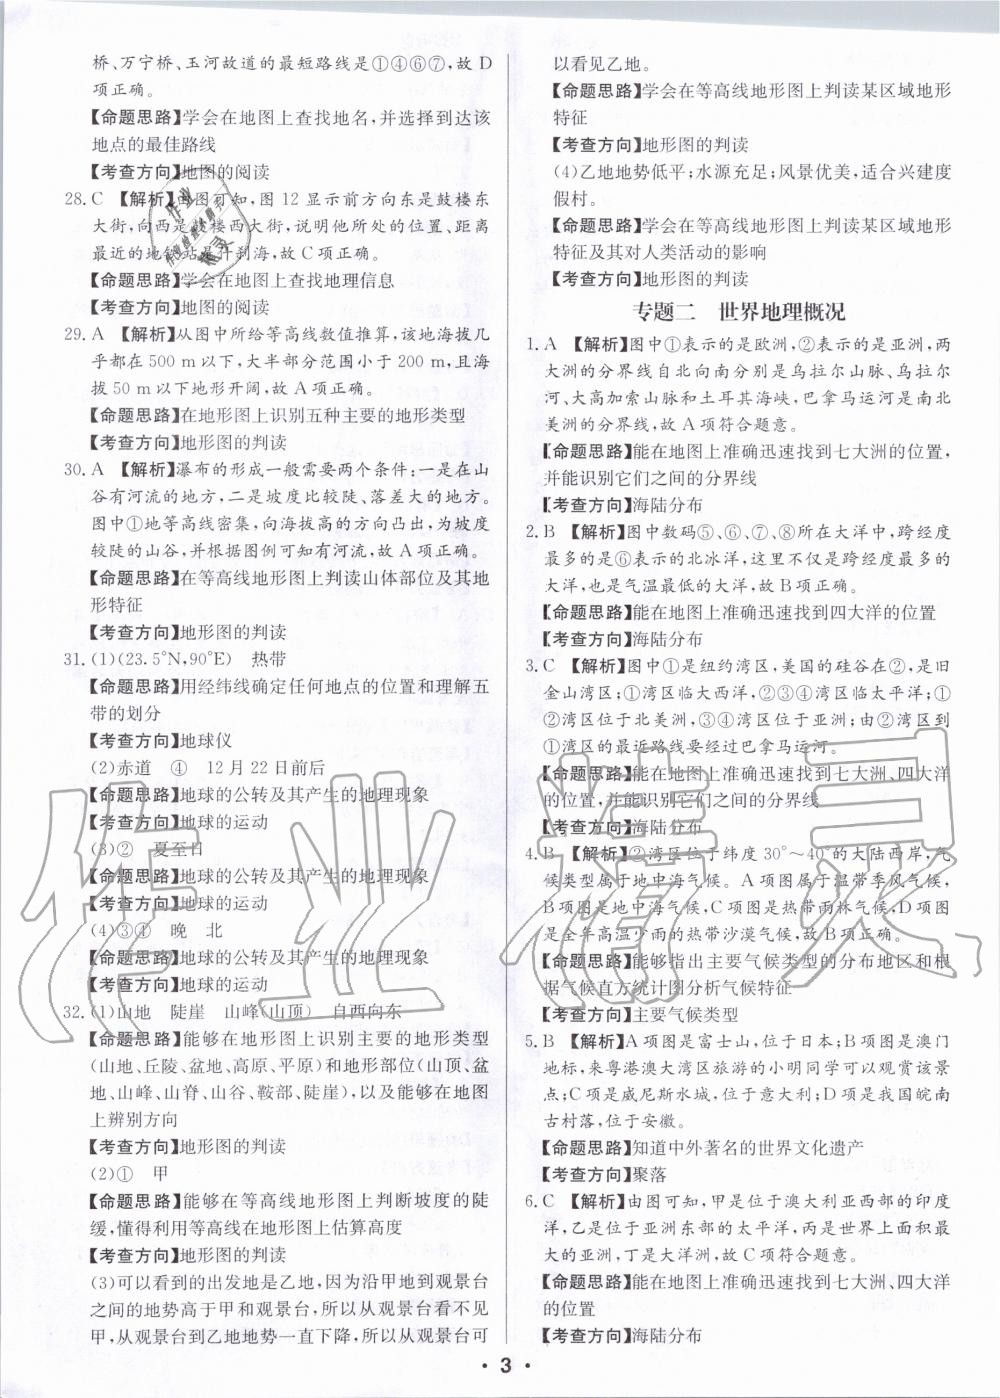 桥、万宁桥、玉河故道的最短路线是①④⑥⑦,故 D
项正确。
【命题思路】学会在地图上查找地名,并选择到达该
地点的最佳路线
【考查方向】地图的阅读
28. C 【解析】由图可知,图 12 显示前方向东是鼓楼东
大街,向西是鼓楼西大街,说明他所处的位置、距离
最近的地铁站是什刹海,故 C 项正确。
【命题思路】学会在地图上查找地理信息
【考查方向】地图的阅读
29. A 【解析】从图中所给等高线数值推算,该地海拔几
乎都在 500 m 以下,大半部分范围小于 200 m,且海
拔 50 m 以下地形开阔,故 A 项正确。
【命题思路】在地形图上识别五种主要的地形类型
【考查方向】地形图的判读
30. A 【解析】瀑布的形成一般需要两个条件:一是在山
谷有河流的地方,二是坡度比较陡、落差大的地方。
图中①地等高线密集,向海拔高的方向凸出,为坡度
较陡的山谷,并根据图例可知有河流,故 A 项正确。
【命题思路】在等高线地形图上判读山体部位及其地
形特征
【考查方向】地形图的判读
31. (1)(23.5°N,90°E) 热带
【命题思路】用经纬线确定任何地点的位置和理解五
带的划分
【考查方向】地球仪
(2)赤道 ④ 12 月 22 日前后
【命题思路】地球的公转及其产生的地理现象
【考查方向】地球的运动
(3)② 夏至日
【命题思路】地球的公转及其产生的地理现象
【考查方向】地球的运动
(4)③④ 晚 北
【命题思路】地球的公转及其产生的地理现象
【考查方向】地球的运动
32. (1)山地 陡崖 山峰(山顶) 自西向东
【命题思路】能够在地形图上识别主要的地形类型
(山地、丘陵、盆地、高原、平原)和地形部位(山顶、
盆地、山峰、山脊、山谷、鞍部、陡崖),以及能够在地图
上辨别方向
【考查方向】地形图的判读
(2)① 甲
【命题思路】能够在等高线地形图上判断坡度的陡
缓,懂得利用等高线在地形图上估算高度
【考查方向】地形图的判读
(3)可以看到的出发地是乙地,因为沿甲地到观景台
之间的地势高于甲和观景台,所以从观景台看不见
甲,从观景台到乙地地势一直下降,所以从观景台可
以看见乙地。
【命题思路】学会在等高线地形图上判读某区域地形
特征
【考查方向】地形图的判读
(4)乙地地势低平;水源充足;风景优美,适合兴建度
假村。
【命题思路】学会在等高线地形图上判读某区域地形
特征及其对人类活动的影响
【考查方向】地形图的判读
专题二 世界地理概况
1. A 【解析】图中①表示的是欧洲,②表示的是亚洲,两
大洲的分界线自北向南分别是乌拉尔山脉、乌拉尔
河、大高加索山脉和土耳其海峡,巴拿马运河是南北
美洲的分界线,故 A 项符合题意。
【命题思路】能在地图上准确迅速找到七大洲的位置,
并能识别它们之间的分界线
【考查方向】海陆分布
2. B 【解析】图中数码⑤、⑥、⑦、⑧所在大洋中,跨经度
最多的是⑥表示的北冰洋,这里不仅是跨经度最多的
大洋,也是气温最低的大洋,故 B 项正确。
【命题思路】能在地图上准确迅速找到四大洋的位置
【考查方向】海陆分布
3. C 【解析】图中①是纽约湾区,美国的硅谷在②,是旧
金山湾区;①湾区临大西洋,②③④湾区临太平洋;①
②湾区位于北美洲,③④湾区位于亚洲;由②湾区到
①湾区的最近路线要经过巴拿马运河。
【命题思路】能在地图上准确迅速找到七大洲、四大洋
的位置,并能识别它们之间的分界线
【考查方向】海陆分布
4. B 【解析】②湾区位于纬度 30°～40°的大陆西岸,气
候类型属于地中海气候。A 项图属于温带季风气候,
B 项图是地中海气候,C 项图是热带雨林气候,D 项图
是全年高温少雨的热带沙漠气候,故 B 项正确。
【命题思路】能够指出主要气候类型的分布地区和根
据气候直方统计图分析气候特征
【考查方向】主要气候类型
5. B 【解析】A 项图是富士山,位于日本;B 项图是澳门
地标,来粤港澳大湾区旅游的小明同学可以观赏该景
点;C 项是威尼斯水城,位于意大利;D 项是我国皖南
古村落,位于安徽。
【命题思路】知道中外著名的世界文化遗产
【考查方向】聚落
6. C 【解析】由图可知,甲是位于澳大利亚西部的印度
洋,乙是位于亚洲东部的太平洋,丙是世界上面积最
大的亚洲,丁是大洋洲,故 C 项符合题意。
【命题思路】能在地图上准确迅速找到七大洲、四大洋
的位置
【考查方向】海陆分布
· 3 ·
作业精灵